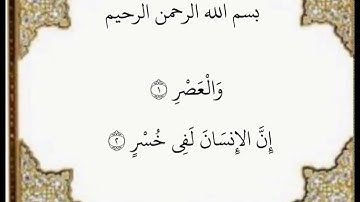 بسم الله الرحمن الرحيم
وَالْعَصْرِ ۝١
إِنَّ الإِنسَانَ لَفِى خُسْرٍ ۝٢